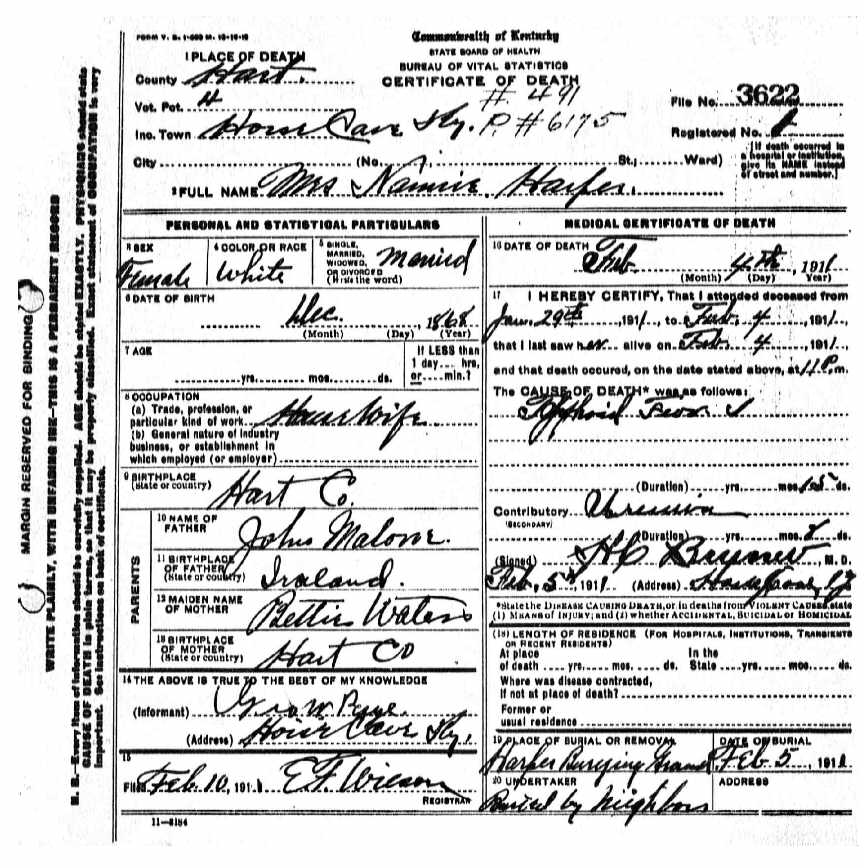 FORM V. S. 1-
Commonwealth of Kentucky
STATE BOARD OF HEALTH
BUREAU OF VITAL STATISTICS
CERTIFICATE OF DEATH
# 491
P. # 6175
1 PLACE OF DEATH
County Hart.
Vot. Pct. 4
Inc. Town Horse Cave Ky.
City (No. St.; Ward)
File No. 3622
Registered No.
[If death occurred in
a hospital or institution,
give its NAME instead
of street and number.]
2 FULL NAME Mrs Nannie Harper.
PERSONAL AND STATISTICAL PARTICULARS
3 SEX
Female
4 COLOR OR RACE
White
5 SINGLE,
MARRIED,
WIDOWED,
OR DIVORCED
(Write the word)
Married
6 DATE OF BIRTH
Dec. , 1868
(Month) (Day) (Year)
7 AGE
yrs. mos. ds.
If LESS than
1 day.... hrs,
or.... min.?
8 OCCUPATION
(a) Trade, profession, or
particular kind of work House Wife
(b) General nature of industry
business, or establishment in
which employed (or employer)
9 BIRTHPLACE
(State or country)
Hart Co.
PARENTS
10 NAME OF
FATHER
John Malone.
11 BIRTHPLACE
OF FATHER
(State or country)
Ireland.
12 MAIDEN NAME
OF MOTHER
Bettie Waters
13 BIRTHPLACE
OF MOTHER
(State or country)
Hart Co
14 THE ABOVE IS TRUE TO THE BEST OF MY KNOWLEDGE
(Informant) Geo W.
(Address) Horse Cave Ky.
15
Filed Feb 10, 1911 E F Wilson
REGISTRAR
11-3184
MEDICAL CERTIFICATE OF DEATH
16 DATE OF DEATH
Feb 4th, 1911
(Month) (Day) (Year)
17 I HEREBY CERTIFY, That I attended deceased from
Jan. 29th, 1911, to Feb. 4, 1911,
that I last saw her alive on Feb. 4, 1911,
and that death occured, on the date stated above, at 11 P. m.
The CAUSE OF DEATH* was as follows:
Typhoid Fever
(Duration) yrs. mos. 15 ds.
Contributory Uremia
(SECONDARY)
(Duration) yrs. mos. ds.
(Signed) H C , M. D.
Feb, 5th, 1911 (Address) Horse Cave, Ky
*State the DISEASE CAUSING DEATH, or in deaths from VIOLENT CAUSES, state
(1) MEANS of INJURY; and (2) whether ACCIDENTAL, SUICIDAL or HOMICIDAL
(18) LENGTH OF RESIDENCE (FOR HOSPITALS, INSTITUTIONS, TRANSIENTS
OR RECENT RESIDENTS)
At place
of death .... yrs. .... mos. .... ds.
In the
State .... yrs. .... mos. .... ds.
Where was disease contracted,
If not at place of death?
Former or
usual residence
19 PLACE OF BURIAL OR REMOVAL
Harper Burying Ground
DATE OF BURIAL
Feb 5, 1911
20 UNDERTAKER
Buried by Neighbors
ADDRESS
MARGIN RESERVED FOR BINDING
WRITE PLAINLY, WITH UNFADING INK—THIS IS A PERMANENT RECORD
N. B.—Every item of information should be carefully supplied. AGE should be stated EXACTLY. PHYSICIANS should state
CAUSE OF DEATH in plain terms, so that it may be properly classified. Exact statement of OCCUPATION is very
important. See instructions on back of certificate.